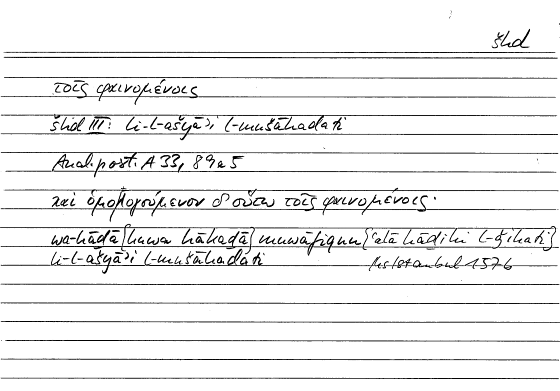 šhd
τοῖς φαινομένοις
šhd III: li-l-ašyāʾi l-mušāhadati
Anal. post. A 33, 89a5
καὶ ὁμολογούμενον δ' οὕτω τοῖς φαινομένοις·
wa-hāḏā {huwa hākaḏā} muwāfiqun {ʿalā hāḏihi l-ǧihati}
li-l-ašyāʾi l-mušāhadati Hs Istanbul 1576